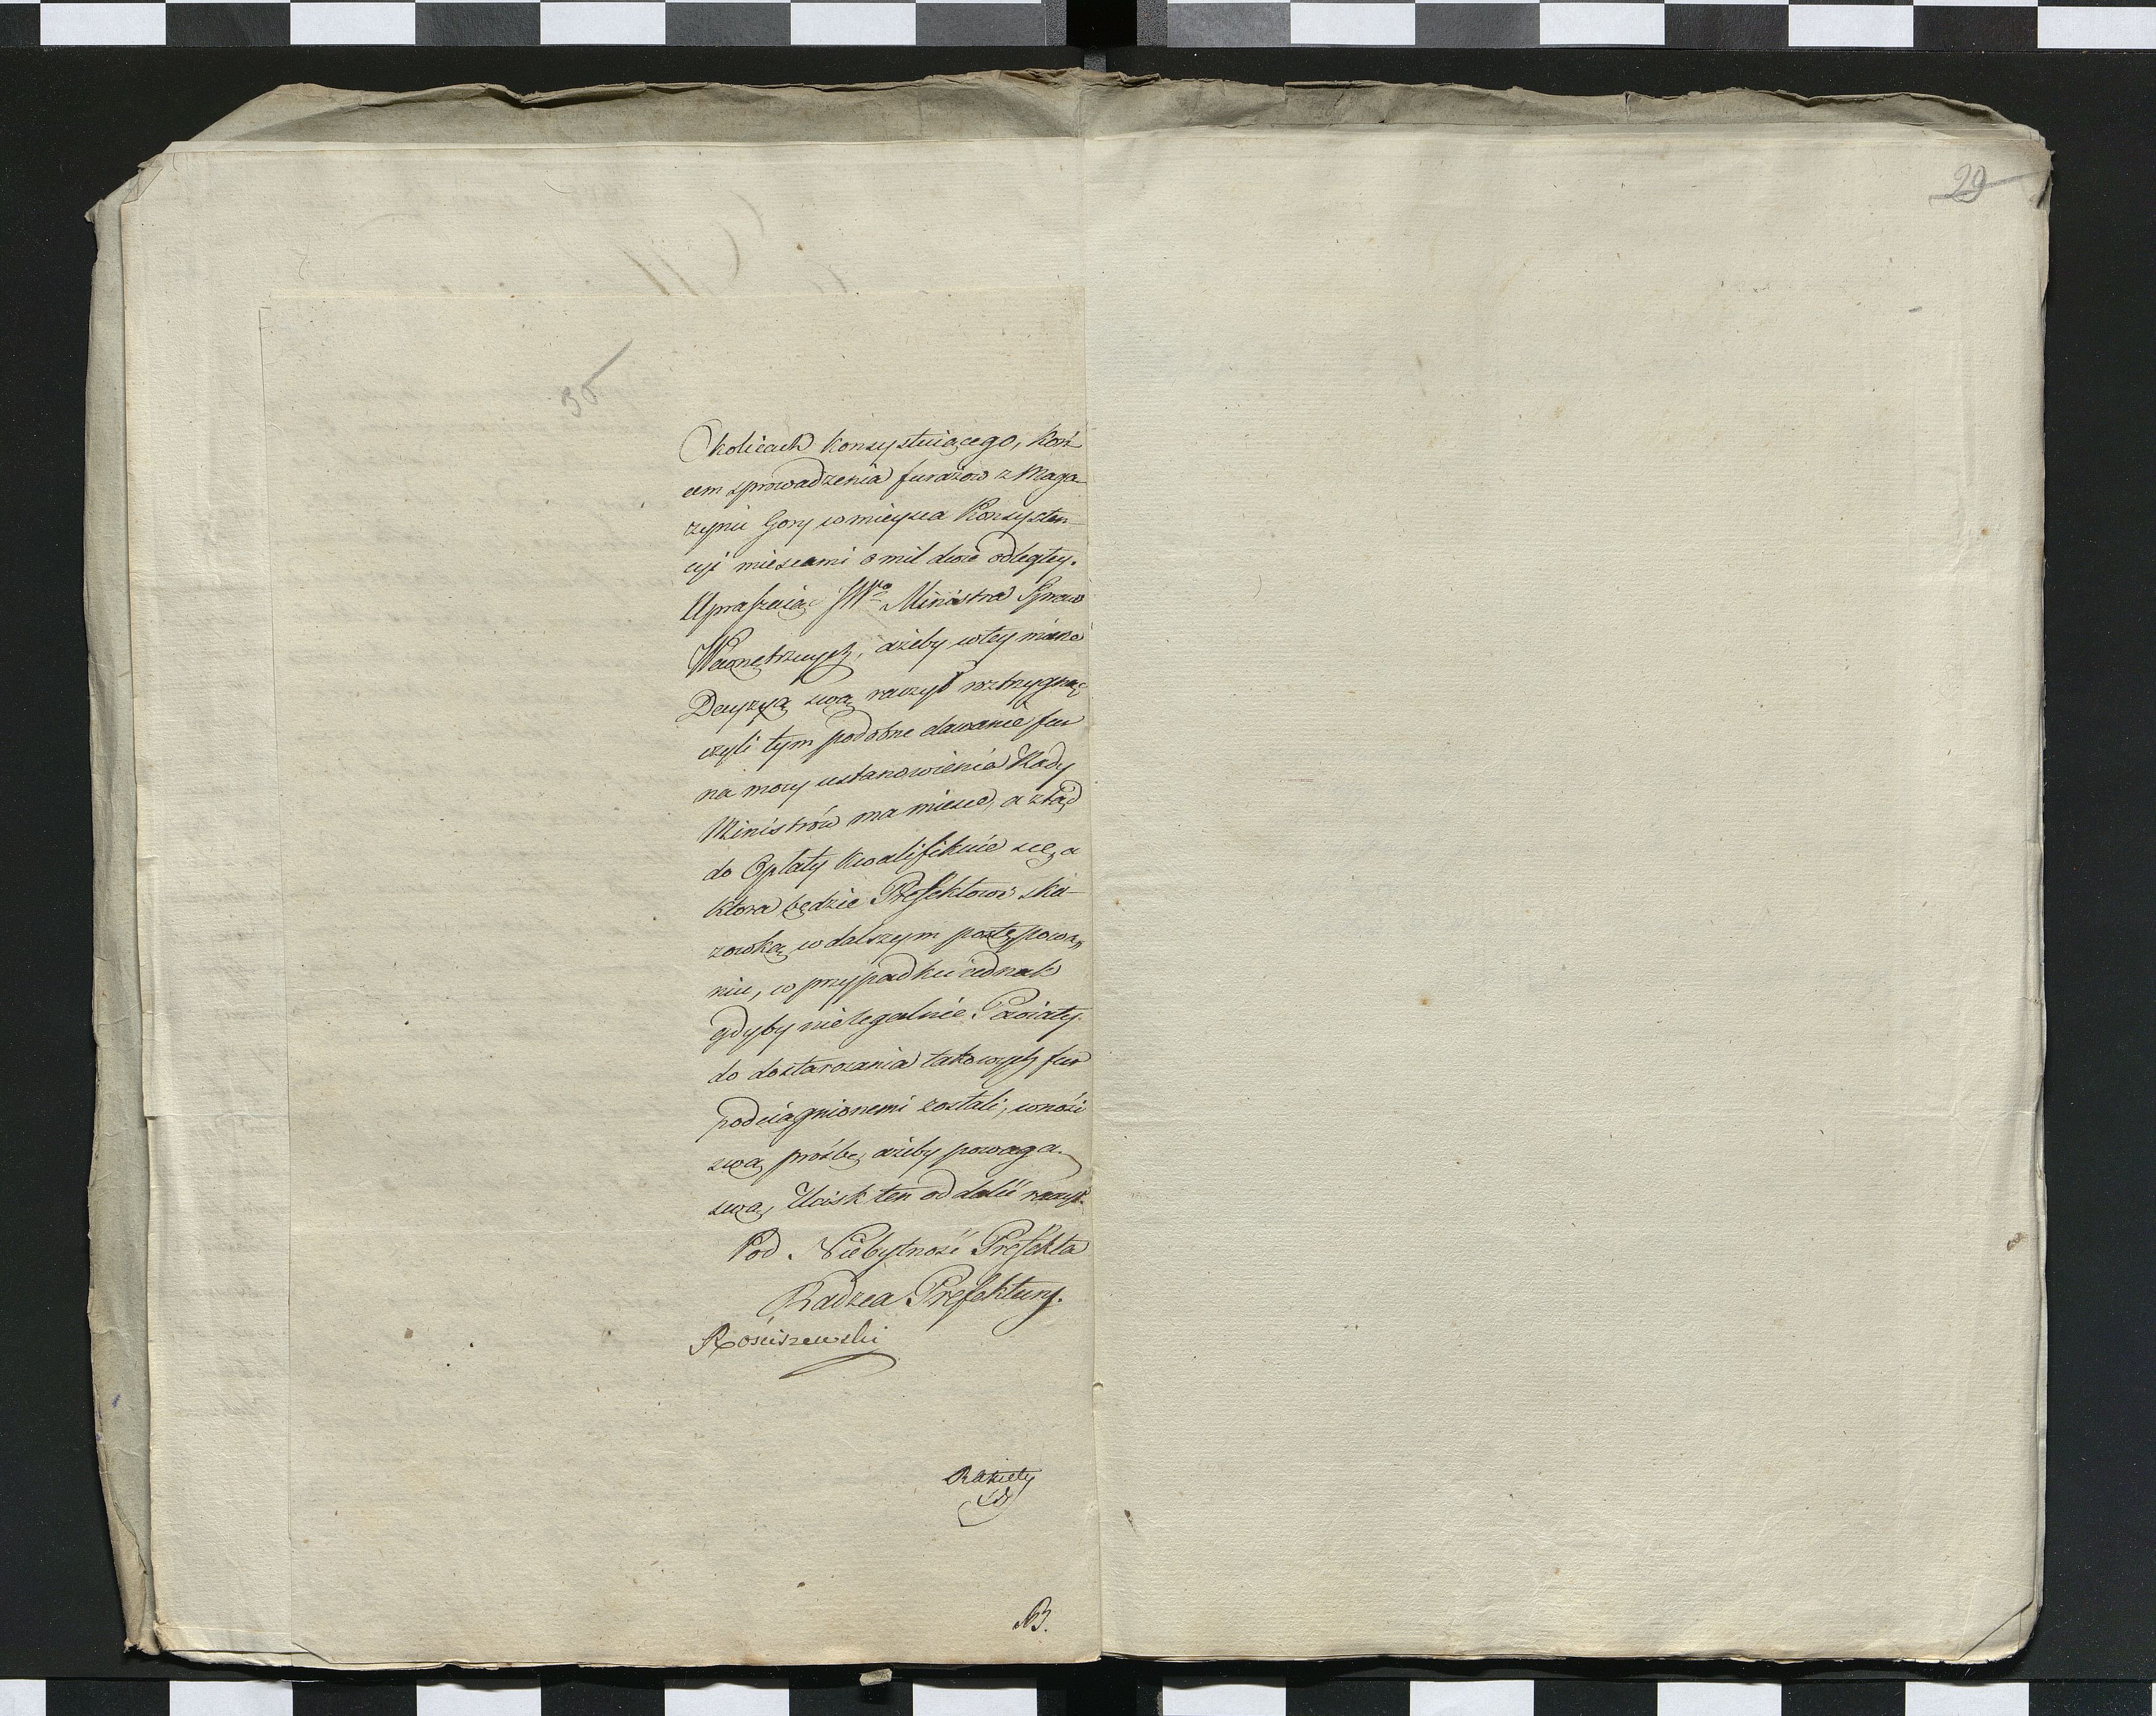 29
35
Okolicach konsystuiącego, koń
cem sprowadzenia furażow z Maga
zynu Gory w mieysca Konsysten
cyi mieścami o mil dwie odległey.
Upraszaiąc JWgo Ministra Spraw
Wewnętrznych, ażeby w tey mierze
Decyzyą swą raczył rozstrzygnąć
czyli tym podobne dawanie fur
na mocy ustanowienia Rady
Ministrów ma miesce, a ztąd
do Opłaty kwalifikuie się, a
ktora będzie Prefektowi ska-
zowką w dalszym postępowa„
niu, w przypadku iednak
gdyby nielegalnie Powiaty
do dostarczania takowych fur
podciągnionemi zostali, wnosi
swą prośbę, ażeby powagą
swą, Ucisk ten oddalić raczył.
Pod Niebytność Prefekta
Radzca Prefektury.
Rościszewski
NB.